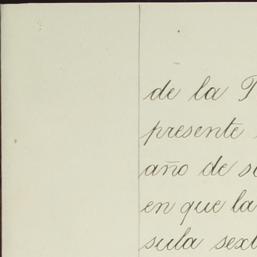 de la
presente
año de
en que la
sula